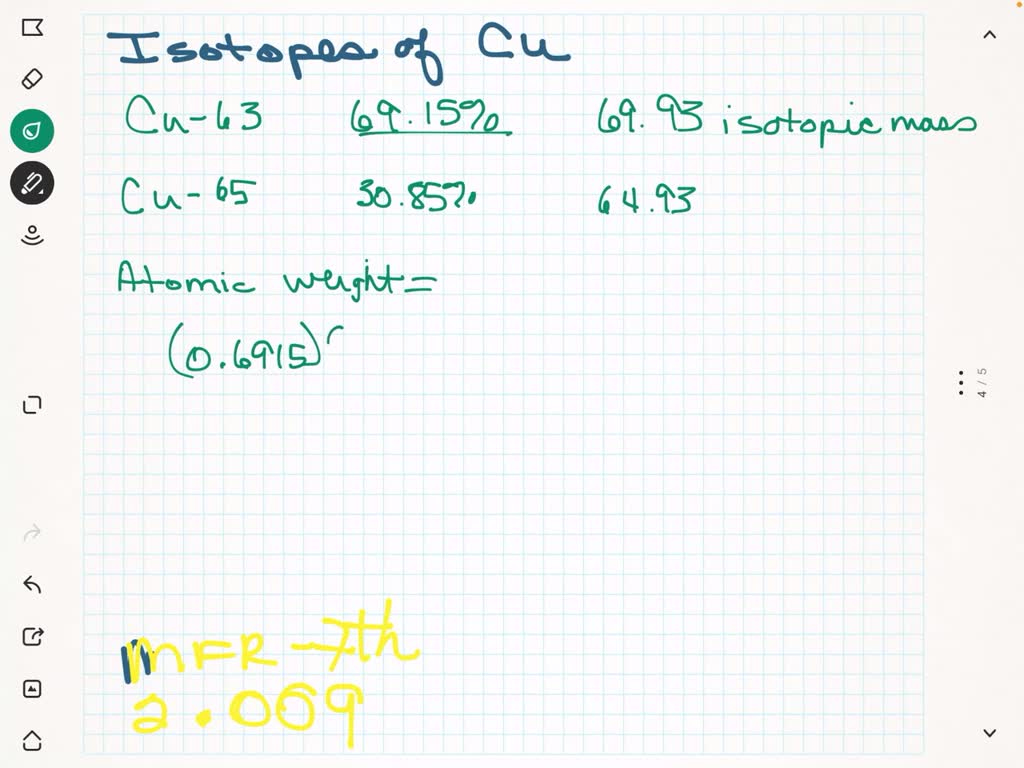 Isotopes of Cu
Cu-63 69.15% 69.93 isotopic mass
Cu-65 30.85% 64.93
Atomic weight =
(0.6915)(
4 / 5
MFR - 7th
2.069